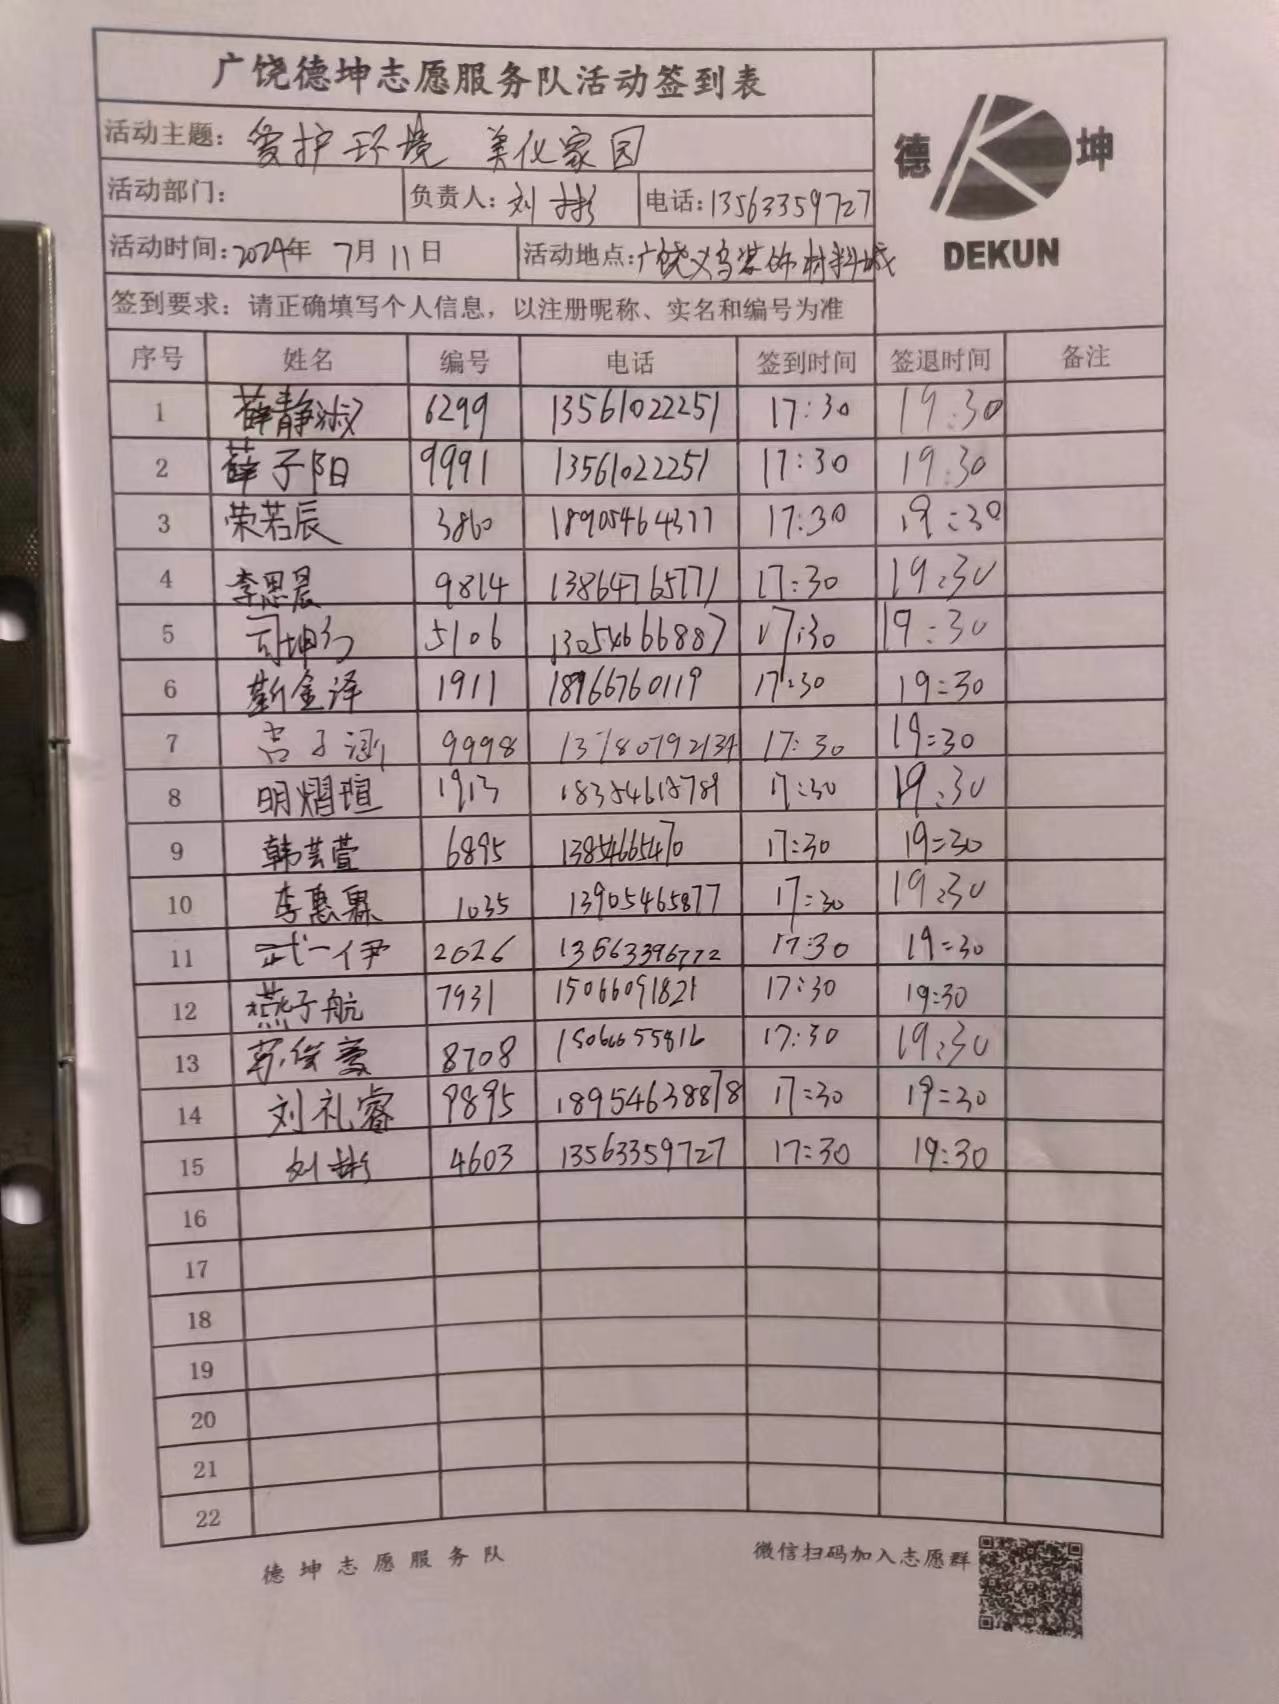 广饶德坤志愿服务队活动签到表
德 坤
DEKUN
活动主题：爱护环境 美化家园
活动部门： 负责人：刘彬 电话：13563359727
活动时间：2024年 7月11日 活动地点：广饶义乌装饰材料城
签到要求：请正确填写个人信息，以注册昵称、实名和编号为准
序号 姓名 编号 电话 签到时间 签退时间 备注
1 薛静淑 6299 13561022251 17:30 19:30
2 薛子阳 9991 13561022251 17:30 19:30
3 荣若辰 3860 18905464377 17:30 19:30
4 李思晨 9814 13864765771 17:30 19:30
5 司坤 5106 13054666887 17:30 19:30
6 靳金泽 1911 18966760119 17:30 19:30
7 吕子涵 9998 17:30 19:30
8 明熠瑄 1913 18354618789 17:30 19:30
9 韩芸萱 6895 13854665470 17:30 19:30
10 李惠霖 1035 13905465877 17:30 19:30
11 武一伊 2026 13563396772 17:30 19:30
12 燕子航 7931 15066091821 17:30 19:30
13 苏俊豪 8708 15066655816 17:30 19:30
14 刘礼睿 9895 18954638878 17:30 19:30
15 刘彬 4603 13563359727 17:30 19:30
16
17
18
19
20
21
22
德坤志愿服务队 微信扫码加入志愿群